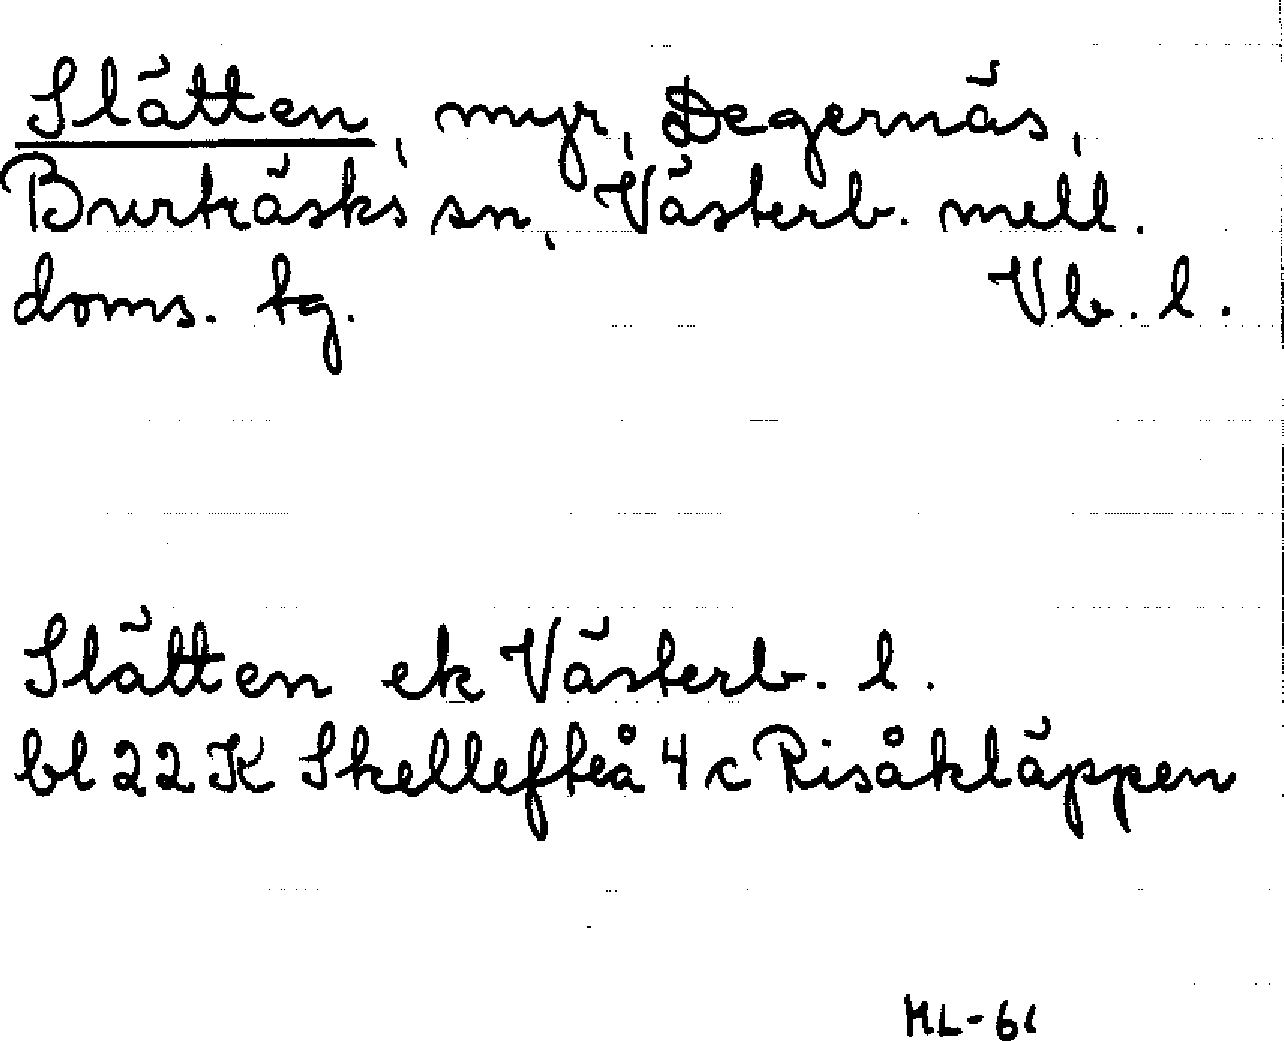 Slätten, myr, Degernäs,
Burträsks sn, Västerb. mell.
doms. tg. Vb. l.
Slätten ek Västerb. l.
bl 22 K Skellefteå 4 c Risåkläppen
ML-61